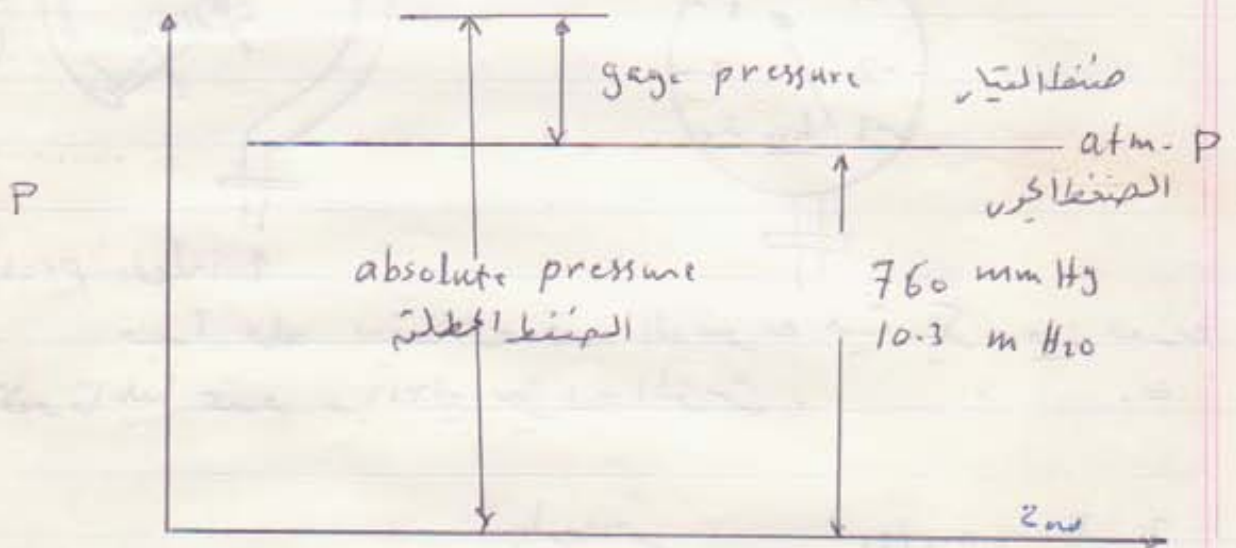 gage pressure ضغط القياس
atm. P
P
الضغط الجوي
absolute pressure
الضغط المطلق
760 mm Hg
10.3 m H₂O